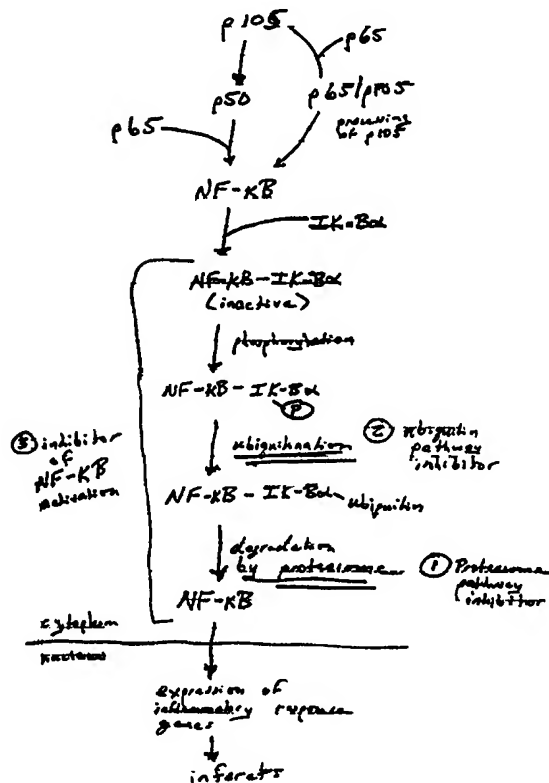 p105
p65
p50
p65/p105
processing
of p105
p65
NF-κB
IκBα
NF-κB-IκBα
(inactive)
phosphorylation
NF-κB-IκBα
P
ubiquitination
② ubiquitin
pathway
inhibitor
③ inhibitor
of
NF-κB
activation
NF-κB-IκBα-ubiquitin
degradation
by proteasome
① Proteasome
pathway
inhibitor
NF-κB
cytoplasm
nucleus
expression of
inflammatory response
genes
infarcts